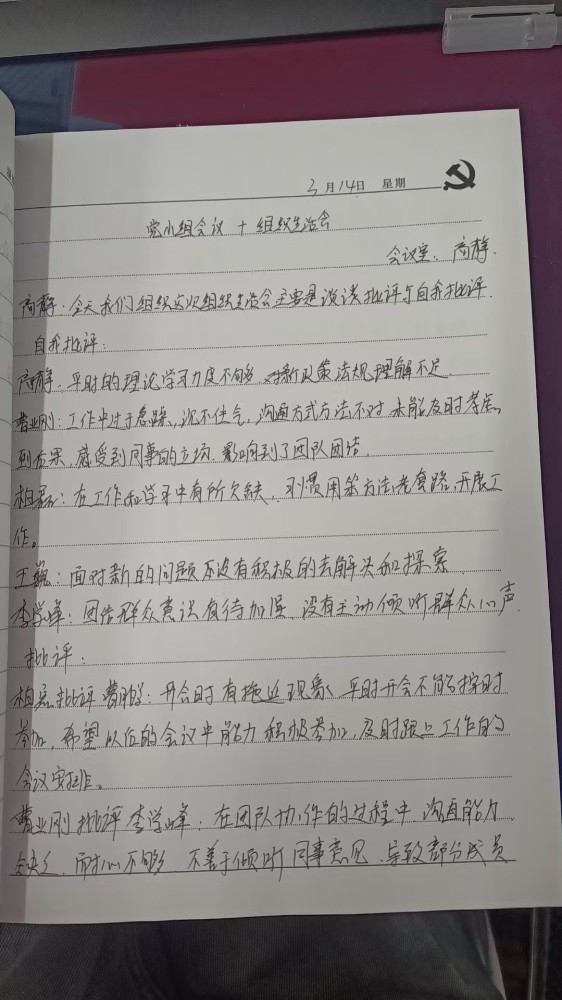 3月14日 星期
党小组会议 + 组织生活会
会议室、商静.
商静:今天我们组织这次组织生活会主要是谈谈批评与自我批评.
自我批评:
商静:平时的理论学习力度不够,对新政策法规理解不足.
曹业刚:工作中过于急躁,沉不住气,沟通方式方法不对 未能及时考虑
到后果,感受到同事的立场.影响到了团队团结.
相磊:在工作和学习中有所欠缺,习惯用笨方法,老套路,开展工
作。
王巍:面对新的问题 不没有积极的去解决和探索
李学峰:团结群众意识有待加强、没有主动倾听群众心声.
批评:
相磊批评 曹:开会时有拖延现象、平时开会不能按时
参加,希望以后的会议中能力积极参加,及时跟上工作的
会议安排。
曹业刚批评李学峰:在团队协作的过程中,沟通能力
缺乏、耐心不够 不善于倾听同事意见、导致部分成员